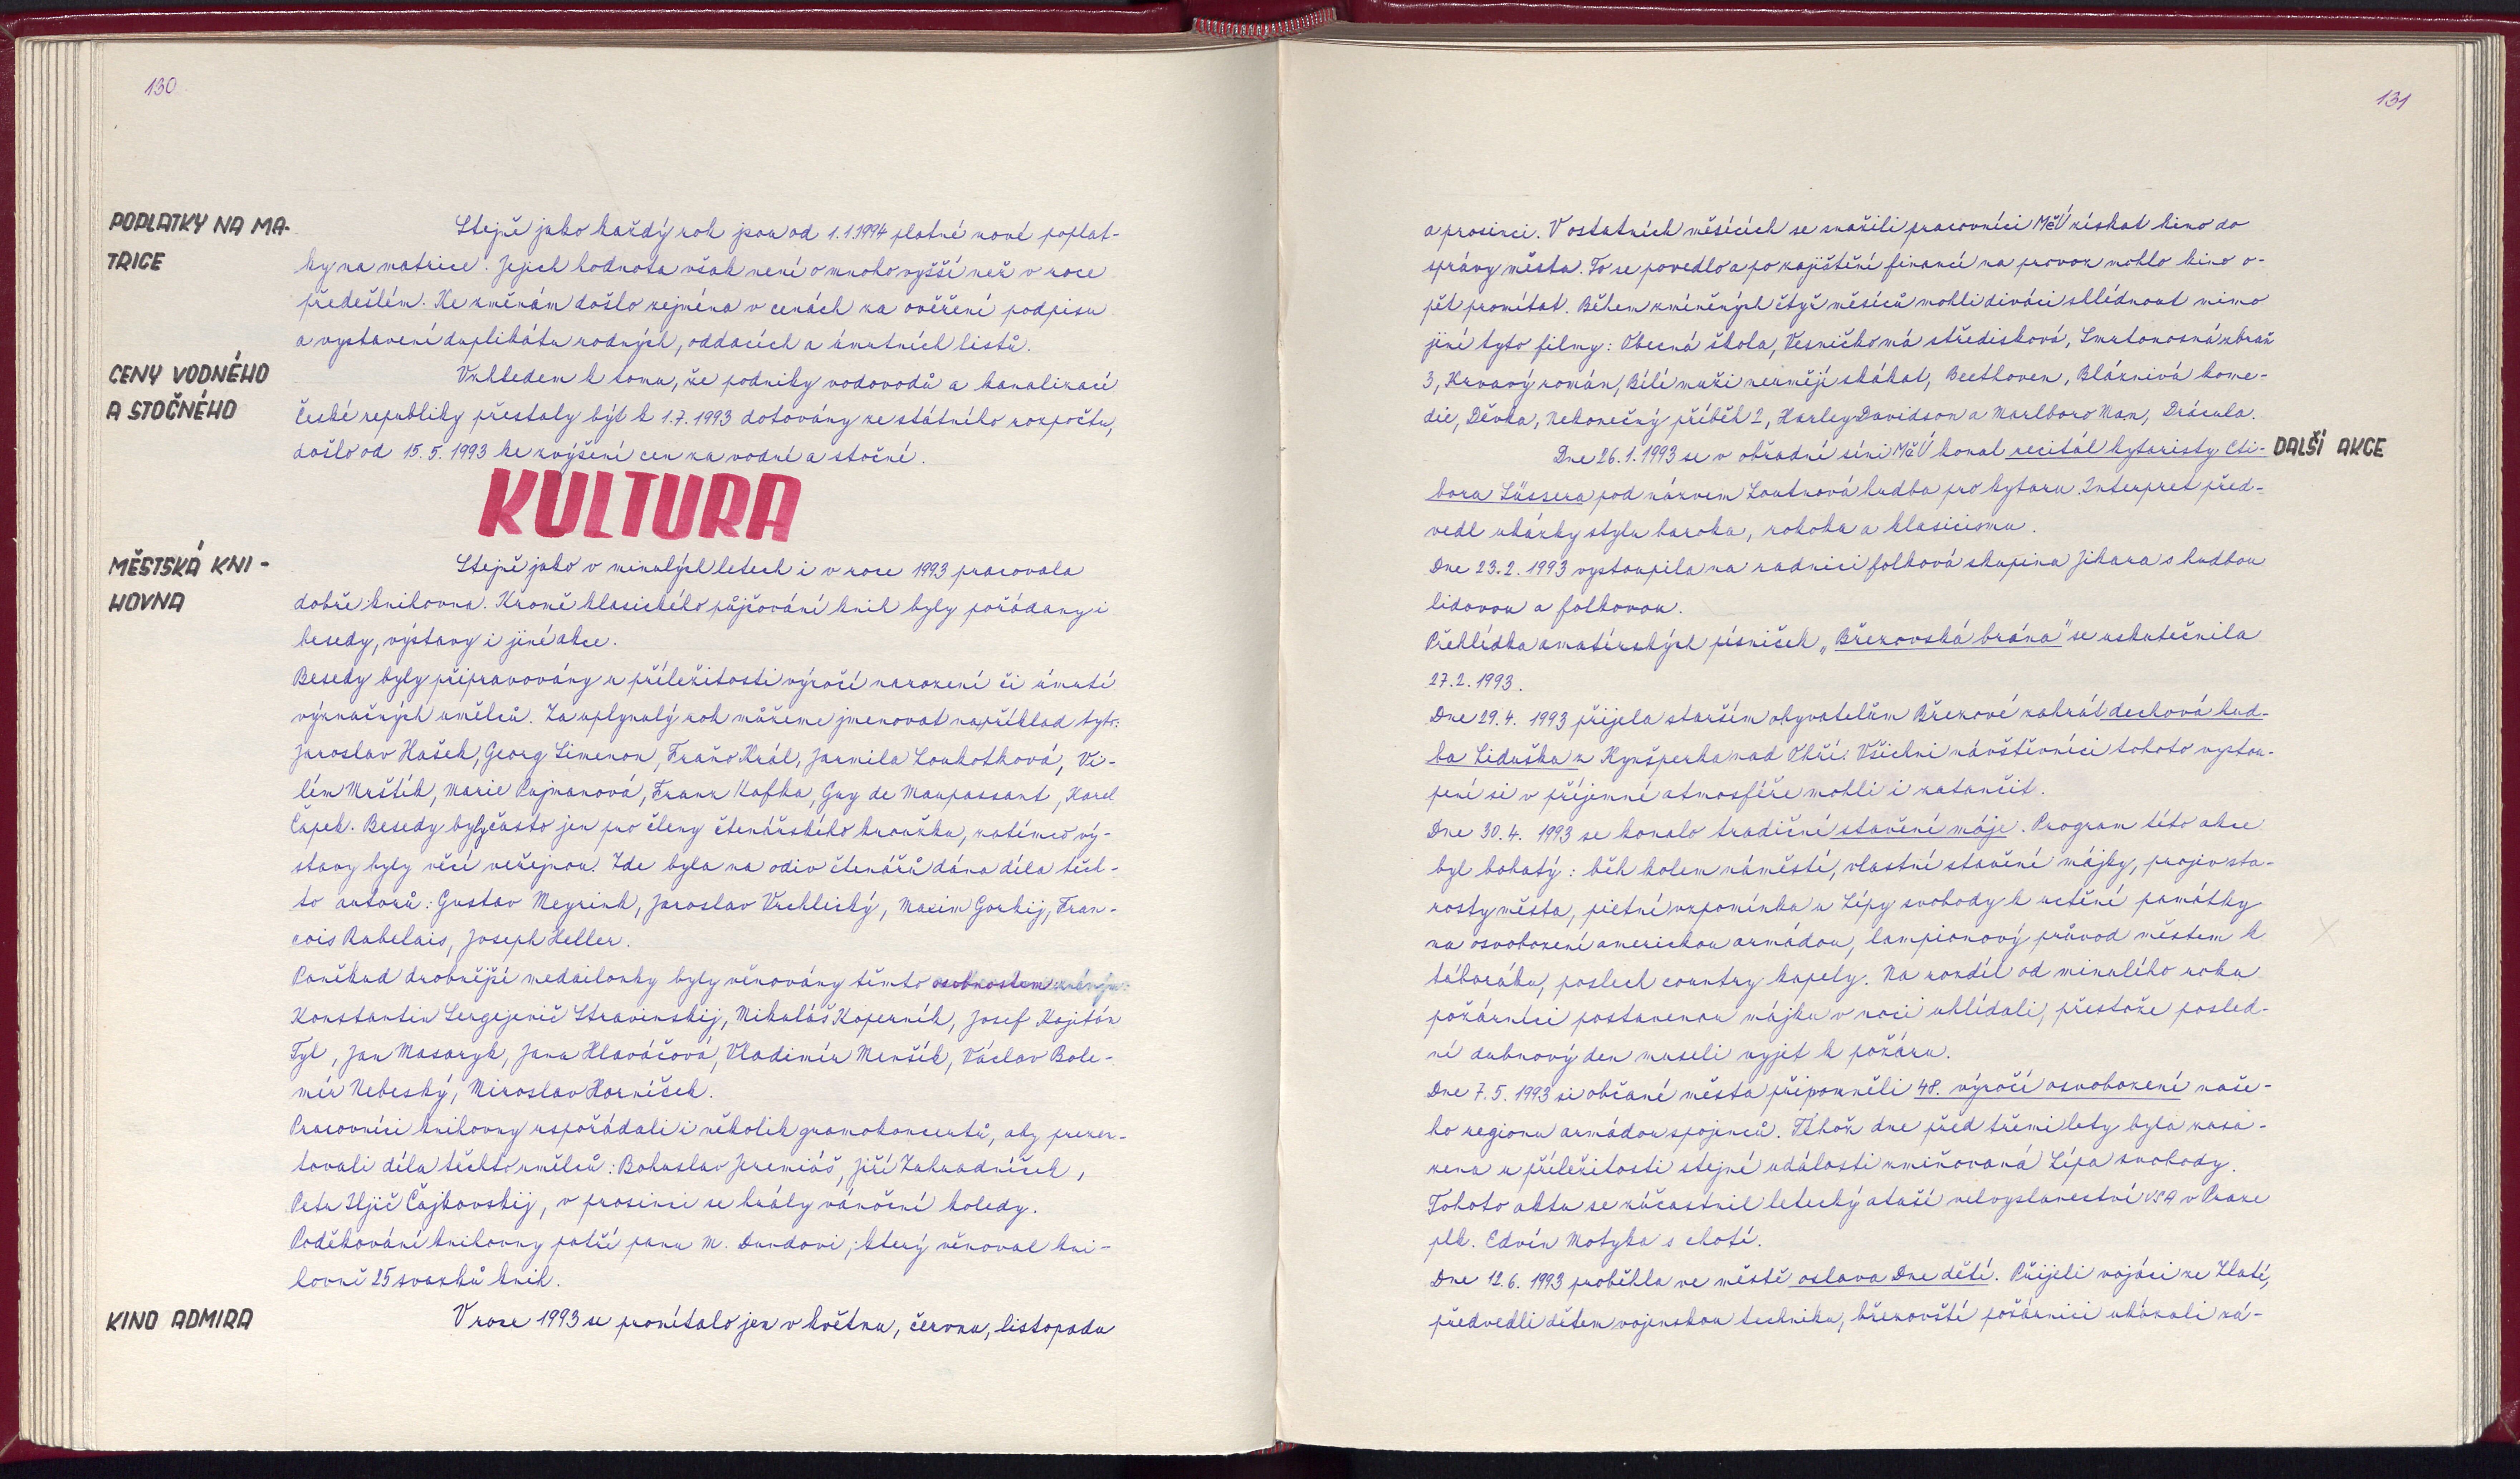 130
POPLATKY NA MA-
TRICE
Stejně jako každý rok jsou od 1.1.1994 platné nové poplat-
ky na matrice. Jejich hodnota však není o mnoho vyšší než v roce
předešlém. Ke změnám došlo zejména v cenách za ověření podpisu
a vystavení duplikátu rodných, oddacích a úmrtních listů.
CENY VODNÉHO
A STOČNÉHO
Vzhledem k tomu, že podniky vodovodů a kanalizací
České republiky přestaly být k 1.7.1993 dotovány ze státního rozpočtu,
došlo od 15.5.1993 ke zvýšení cen za vodné a stočné.
KULTURA
MĚSTSKÁ KNI-
HOVNA
Stejně jako v minulých letech i v roce 1993 pracovala
dobře knihovna. Kromě klasického půjčování knih byly pořádany i
besedy, výstavy i jiné akce.
Besedy byly připravovány u příležitosti výročí narození či úmrtí
význačných umělců. Za uplynulý rok můžeme jmenovat například tyto:
Jaroslav Hašek, Georg Simenon, Fraňo Král, Jarmila Loukotková, Vi-
lém Mrštík, Marie Pujmanová, Franz Kafka, Guy de Maupassant, Karel
Čapek. Besedy byly často jen pro členy čtenářského kroužku, zatímco vý-
stavy byly věcí veřejnou. Zde byla na odiv čtenářů dána díla těch-
to autorů: Gustav Meyrink, Jaroslav Vrchlický, Maxim Gorkij, Fran-
cois Rabelais, Joseph Heller.
Poněkud drobnější medailonky byly věnovány těmto osobnostem
Konstantin Sergejevič Stravinskij, Mikuláš Koperník, Josef Kajitán
Tyl, Jan Masaryk, Jana Hlaváčová, Vladimír Menšík, Václav Bole-
mír Nebeský, Miroslav Horníček.
Pracovníci knihovny uspořádali i několik gramokoncertů, aby prezen-
tovali díla těchto umělců: Bohuslav Jeremiáš, Jiří Zahradníček,
Petr Iljič Čajkovskij, v prosinci se hrály vánoční koledy.
Poděkování knihovny patří panu M. Dundovi, který věnoval kni-
hovně 25 svazků knih.
KINO ADMIRA
V roce 1993 se promítalo jen v květnu, červnu, listopadu
131
a prosinci. V ostatních měsících se snažili pracovníci MěÚ získat kino do
správy města. To se povedlo a po zajištění financí na provoz mohlo kino o-
pět promítat. Během zmíněných čtyř měsíců mohli diváci shlédnout mimo
jiné tyto filmy: Obecná škola, Vesničko má středisková, Smrtonosná zbraň
3, Krvavý román, Bílí muži neumějí skákat, Beethoven, Bláznivá kome-
die, Děvka, Nekonečný příběh 2, Harley Davidson a Marlboro Man, Drácula.
Dne 26.1.1993 se v obřadní síni MěÚ konal recitál kytaristy Cti-
DALŠÍ AKCE
bora Süssera pod názvem Loutnová hudba pro kytaru. Interpret před-
vedl ukázky stylu baroka, rokoka a klasicismu.
Dne 23.2.1993 vystoupila na radnici folková skupina Jihara s hudbou
lidovou a folkovou.
Přehlídka amatérských písniček „Březovská brána" se uskutečnila
27.2.1993.
Dne 29.4. 1993 přijela starším obyvatelům Březové zahrát dechová hud-
ba Liduška z Kynšperka nad Ohří. Všichni návštěvníci tohoto vystou-
pení si v příjemné atmosféře mohli i zatančit.
Dne 30.4. 1993 se konalo tradiční stavění máje. Program této akce
byl bohatý: běh kolem náměstí, vlastní stavění májky, projev sta-
rosty města, pietní vzpomínka u Lípy svobody k uctění památky
na osvobození americkou armádou, lampionový průvod městem k
táboráku, poslech country kapely. Na rozdíl od minulého roku
požárníci postavenou májku v noci uhlídali, přestože posled-
ní dubnový den museli vyjet k požáru.
Dne 7.5. 1993 si občané města připomněli 48. výročí osvobození naše-
ho regionu armádou spojenců. Téhož dne před třemi lety byla zasa-
zena u příležitosti stejné události zmiňovaná Lípa svobody.
Tohoto aktu se zúčastnil letecký atašé velvyslanectví USA v Praze
plk. Edvín Motyka s chotí.
Dne 12.6. 1993 proběhla ve městě oslava Dne dětí. Přijeli vojáci ze Zlaté,
předvedli dětem vojenskou techniku, březovští požárníci ukázali zá-